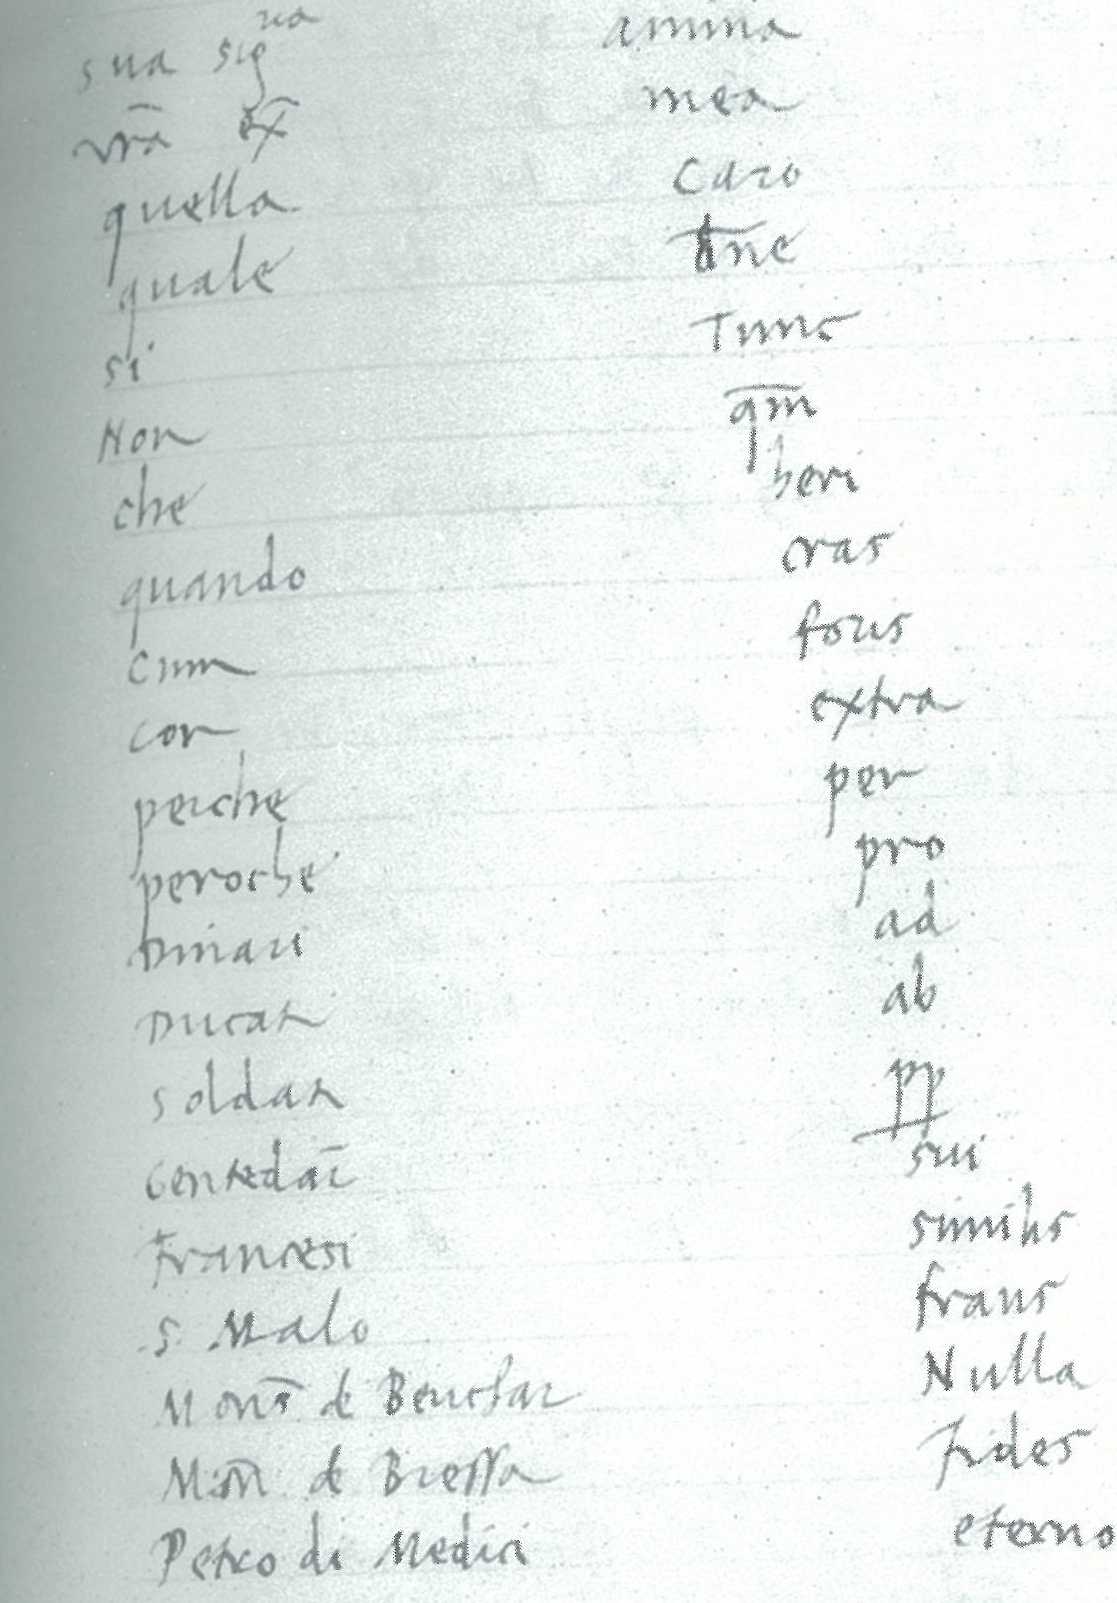 sua sig.ria
vr̄a ex̄
quella
quale
si
Non
che
quando
cum
con
perche
peroche
Dinari
Ducati
soldati
Gentedar̄
Francesi
S. Malo
Mons̄ de
Mon̄ de Bressa
Petro di Medici
anima
mea
caro
Tunc
qm̄
heri
cras
foris
extra
per
pro
ad
ab
pp
sui
similis
fraus
Nulla
fides
eterno